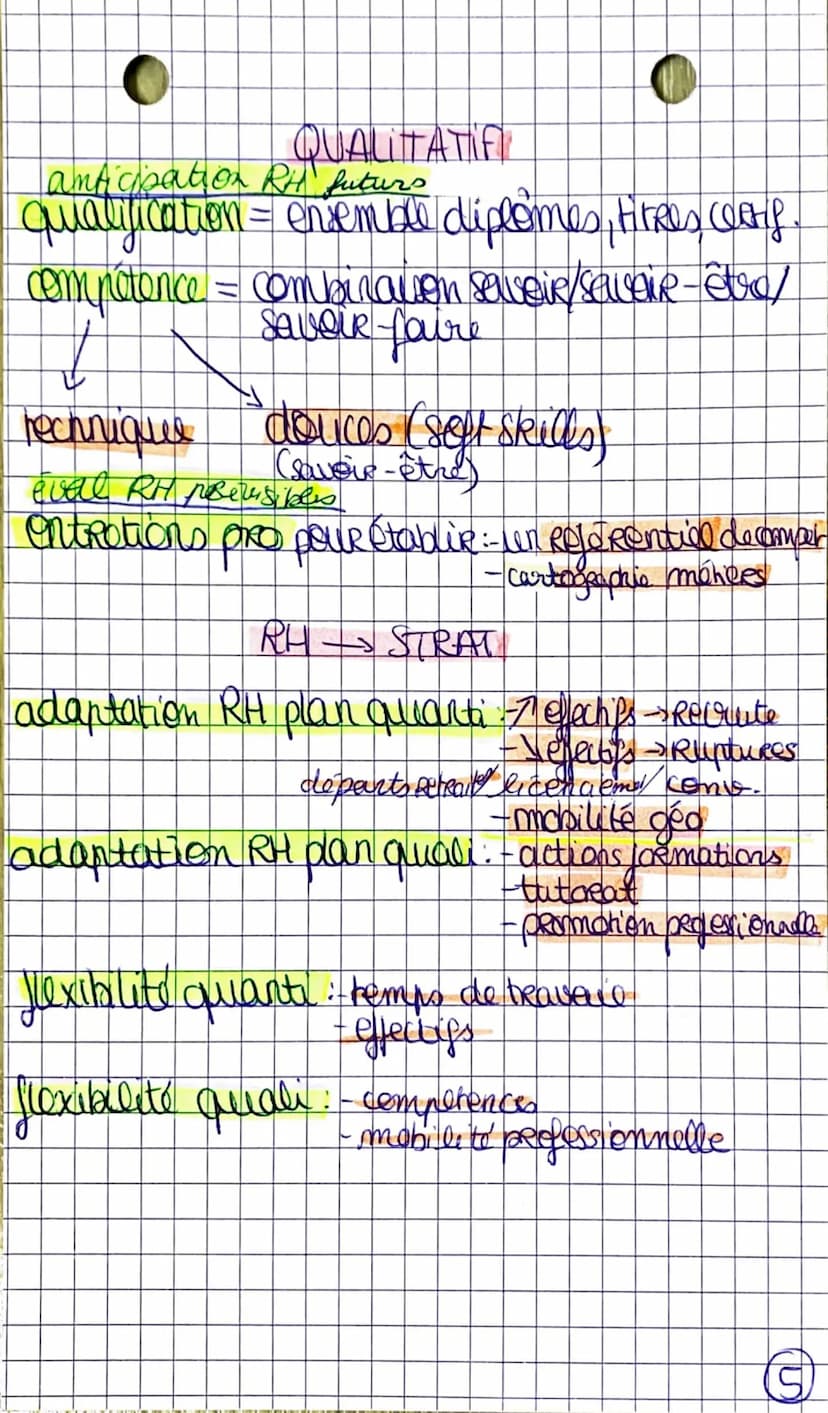 QUALITATIF
anticipation RH futurs
qualification = ensemble diplômes, titres, certif.
compétence = combinaison savoir/savoir-être/
savoir-faire
technique douces (soft skills)
(savoir-être)
éval RH prévisibles
entretions pro pour établir : - un référentiel de compet
- cartographie métiers
RH → STRAT
adaptation RH plan quanti : - ↗ effectifs → recrute
- ↘ effectifs → ruptures
départs retraite/ licenciem/ conv.
- mobilité géo
adaptation RH plan quali : - actions formations
- tutorat
- promotion professionnelle
flexibilité quanti : - temps de travail
- effectifs
flexibilité quali : - compétences
- mobilité professionnelle
5